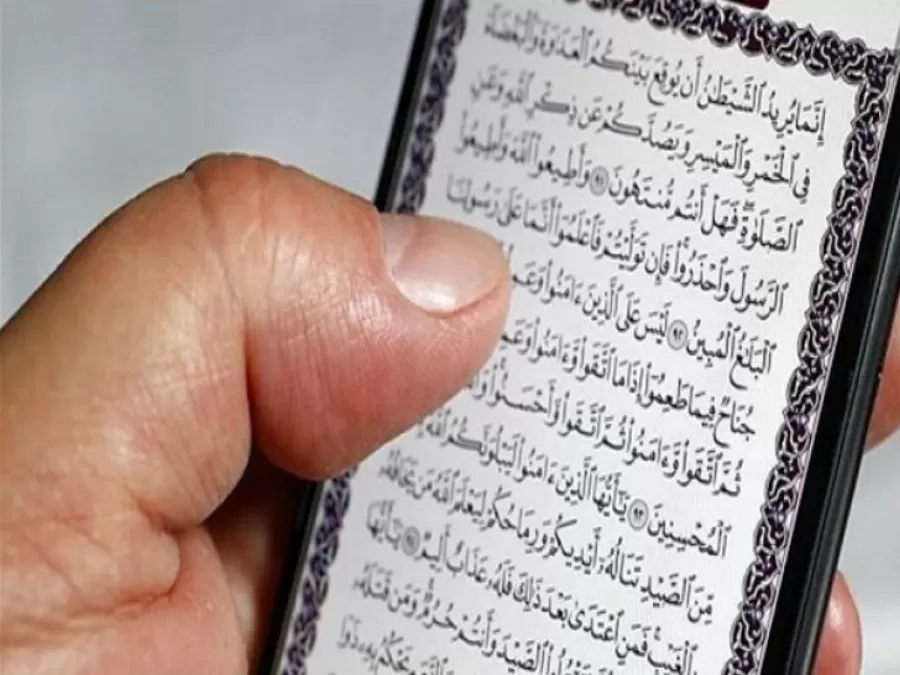 إِنَّمَا يُرِيدُ ٱلشَّيْطَٰنُ أَن يُوقِعَ بَيْنَكُمُ ٱلْعَدَٰوَةَ وَٱلْبَغْضَآءَ
فِي ٱلْخَمْرِ وَٱلْمَيْسِرِ وَيَصُدَّكُمْ عَن ذِكْرِ ٱللَّهِ وَعَنِ
ٱلصَّلَوٰةِ ۖ فَهَلْ أَنتُم مُّنتَهُونَ ٩١ وَأَطِيعُوا۟ ٱللَّهَ وَأَطِيعُوا۟
ٱلرَّسُولَ وَٱحْذَرُوا۟ ۚ فَإِن تَوَلَّيْتُمْ فَٱعْلَمُوٓا۟ أَنَّمَا عَلَىٰ رَسُولِنَا
ٱلْبَلَٰغُ ٱلْمُبِينُ ٩٢ لَيْسَ عَلَى ٱلَّذِينَ ءَامَنُوا۟
جُنَاحٌ فِيمَا طَعِمُوٓا۟ إِذَا مَا ٱتَّقَوا۟ وَّءَامَنُوا۟
ثُمَّ ٱتَّقَوا۟ وَّءَامَنُوا۟ ثُمَّ ٱتَّقَوا۟ وَّأَحْسَنُوا۟
ٱلْمُحْسِنِينَ ٩٣ يَٰٓأَيُّهَا ٱلَّذِينَ ءَامَنُوا۟ لَيَبْلُوَنَّكُمُ ٱللَّهُ
مِّنَ ٱلصَّيْدِ تَنَالُهُۥٓ أَيْدِيكُمْ وَرِمَاحُكُمْ لِيَعْلَمَ ٱللَّهُ مَن يَخَافُهُۥ
بِٱلْغَيْبِ ۚ فَمَنِ ٱعْتَدَىٰ بَعْدَ ذَٰلِكَ فَلَهُۥ عَذَابٌ أَلِيمٌ ٩٤ يَٰٓأَيُّهَا
ٱلصَّيْدَ وَأَنتُمْ حُرُمٌ ۚ وَمَن قَتَلَهُۥ
يَحْكُمُ بِهِۦ ذَوَا